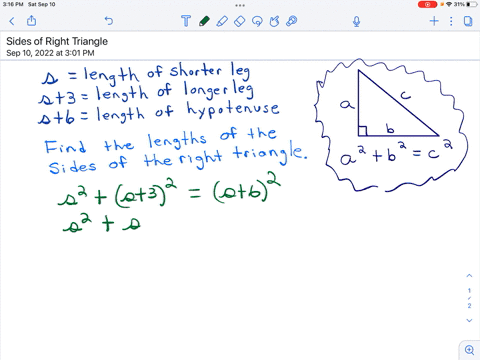 3:16 PM Sat Sep 10
31%
Sides of Right Triangle
Sep 10, 2022 at 3:01 PM
s = length of shorter leg
s+3 = length of longer leg
s+6 = length of hypotenuse
Find the lengths of the
sides of the right triangle.
s² + (s+3)² = (s+6)²
s² + s
a
c
b
a² + b² = c²
1
2